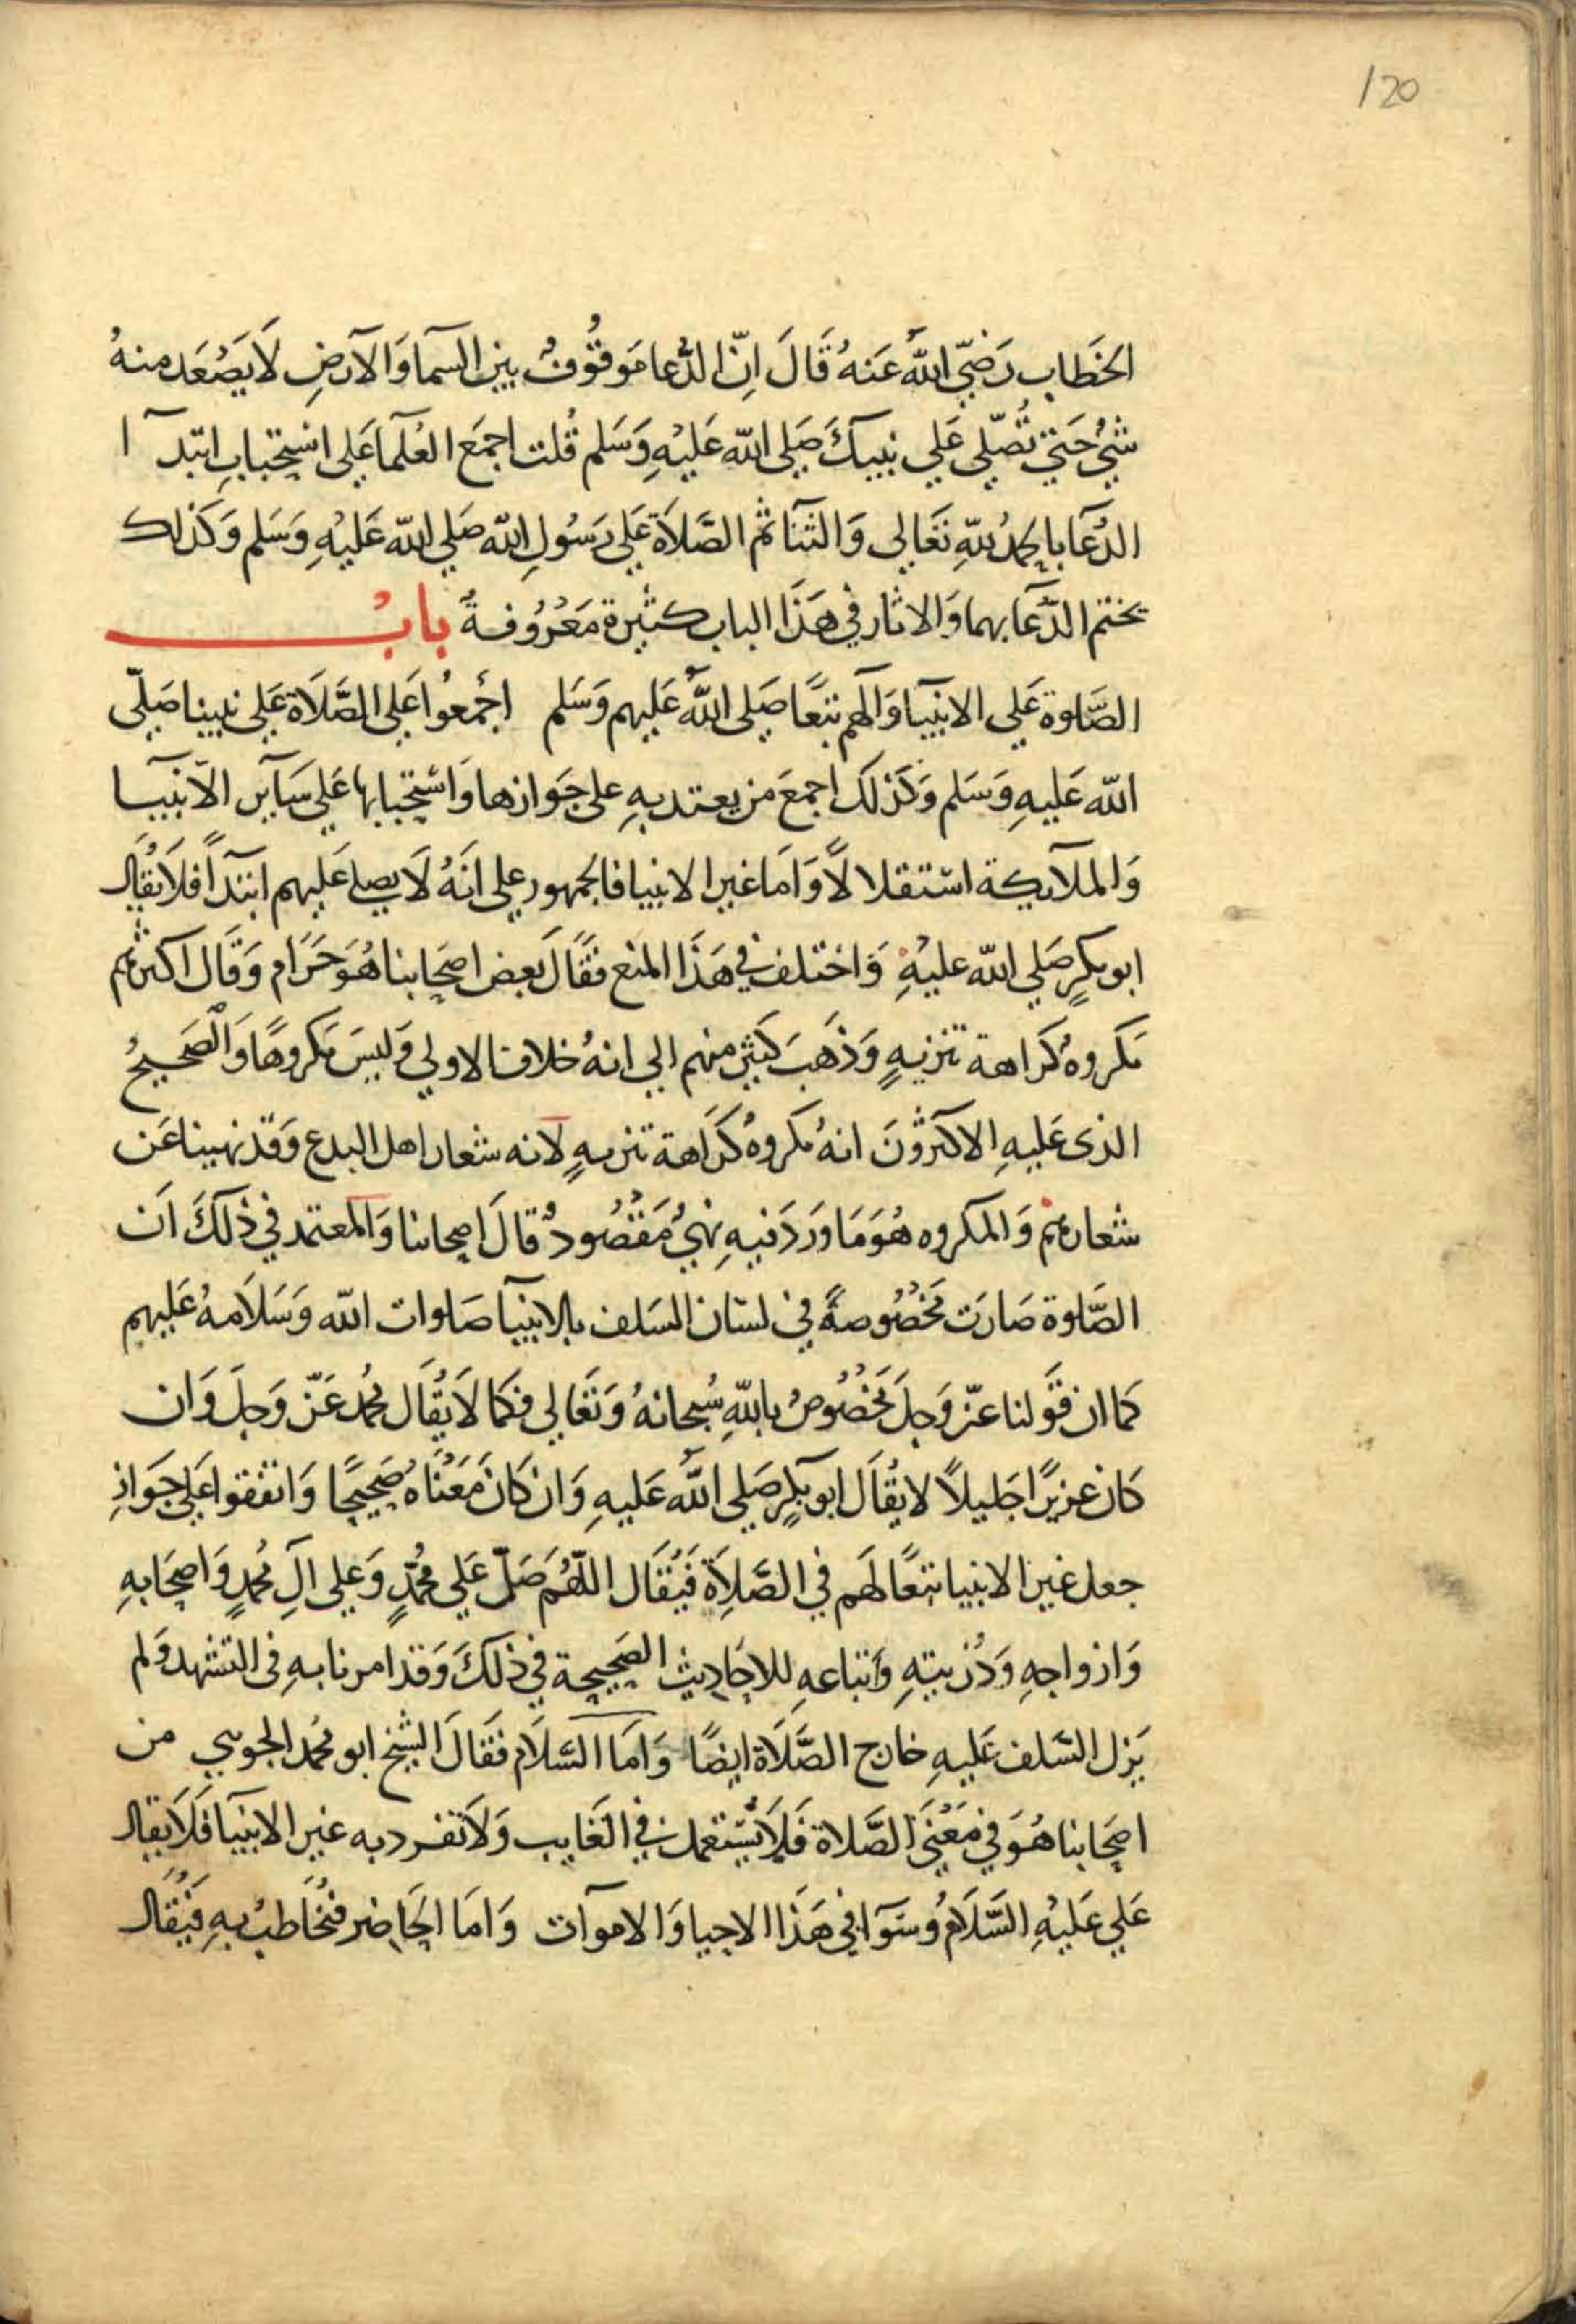 120
الخَطابِ رَضِيَ اللهُ عَنهُ قَالَ اِنّ الدُّعا مَوقُوُفٌ بين السّما وَالاَرضِ لَا يَصْعَد منهُ
شَيْءٌ حَتي تُصَلّي عَلي نبيكَ صَلي الله عَليْهِ وَسَلم قُلت اجمَع العُلَما عَلي اسْتِحبَابِ ابتدآ ا
الدُعَآ بالحَمدُ للهِ تَعَالي وَالثنآ ثم الصَّلَاة عَلي رَسُولِ الله صَلي الله عَليْهِ وَسَلم وَكَذلك
يختم الدّعَآ بهما وَالاثار في هَذَا الباب كثيرة مَعْرُوفةٌ بابُ
الصَّلوة عَلي الانبيآ وَآلهم تبَعًا صَلي اللهُ عَليهم وَسَلم اجْمعُوا عَلي الصَّلَاة عَلي نبينا صَلّي
الله عَليهِ وَسَلم وَكَذلكَ اجمعَ من يعتد بهِ علي جَوازها وَاسْتِحبابها عَلي سَآيرِ الاَنبيَآ
وَالملَآيكة اسْتقلالًا وَامَا غير الانبيا فالجمهور علي انَهُ لَا يصلي عَليهم ابتدآً فلَا يُقَال
ابو بكرٍ صَلي الله عليْهِ وَاختلف في هَذَا المنع فقَالَ بَعض اصحَابنا هُوَ حَرَام وَقَال اكثرهُم
مَكروهٌ كَراهة تنزيهٍ وَذَهَبَ كَثيرٌ منهم الي انهُ خلاف الاولي وَليسَ مَكروهًا وَالصَحيحُ
الذي عَليهِ الاكثرُونَ انهُ مكروهٌ كَرَاهة تنزيهٍ لانه شعار اهل البدع وَقد نهينا عَن
شعارهم وَالمكروه هُوَ مَا وَردَ فيهِ نهيٌ مَقْصُودٌ قالَ اصحابنا وَالمعتمد في ذلكَ اَن
الصَّلوة صَارَت مَخْصُوصةً في لسَان السَلف بالانبيآ صَلوات الله وَسَلَامهُ عَليهم
كما ان قَولنا عزّ وَجلَ مَخْصُوصٌ باللهِ سُبحانهُ وَتَعَالي فكما لَا يُقَال مُحمد عَزّ وَجلَ وَان
كان عزيزًا جَليلًا لا يُقَال ابو بكرٍ صَلي اللهُ عَليهِ وَان كانَ مَعْنَاهُ صَحيحًا وَاتفقوا عَلي جَوازِ
جعل غير الانبيا تبَعًا لَهم في الصَّلَاِة فَيُقَال اللّهُمَ صَلّ عَلي مُحمّدٍ وَعَلي الِ مُحمدٍ وَاصحَابهِ
وَازواجهِ وَذُريتهِ وَاتباعهِ للاحَاديثِ الصَحِيحة في ذلكَ وَقد امرنا بهِ في التشهد وَلم
يَزل السَّلف عَليهِ خارج الصَّلَاة ايضًا وَامَا السَّلَام فقَالَ الشيخ ابو مُحمد الجويني من
اصحَابنا هُوَ في مَعْنَي الصَّلاة فَلَا يُسْتعمل في الغَايب وَلَا تفرد به غير الانبيآ فَلَا يقال
عَلي عَليْهِ السَّلَامُ وَسَوآ في هَذَا الاحيا وَالاموَات وَامَا الحَاضر فيُخَاطبُ بهِ فَيُقَال